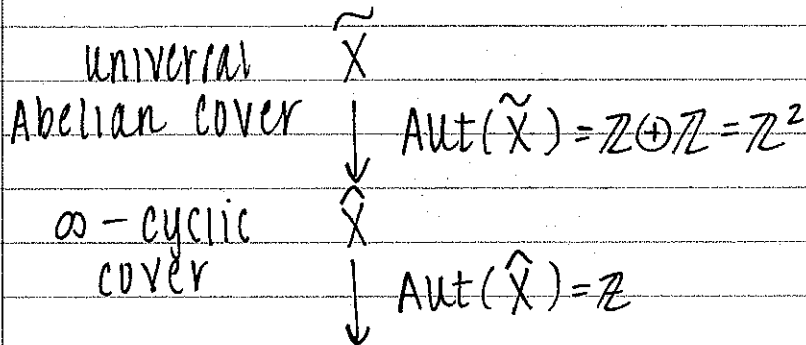 universal X̃
Abelian cover ↓ Aut(X̃) = ℤ⊕ℤ = ℤ²
∞-cyclic X̂
cover ↓ Aut(X̂) = ℤ